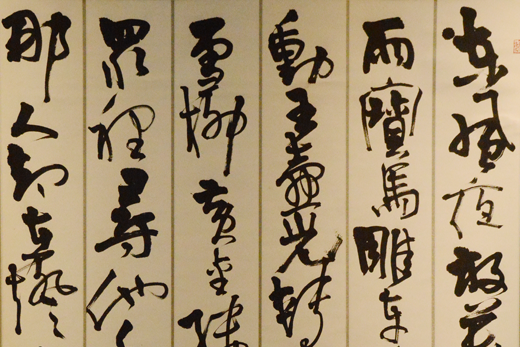 東風夜放花
雨寶馬雕車
動玉壺光轉
雪柳黃金縷
眾裡尋他
那人却在